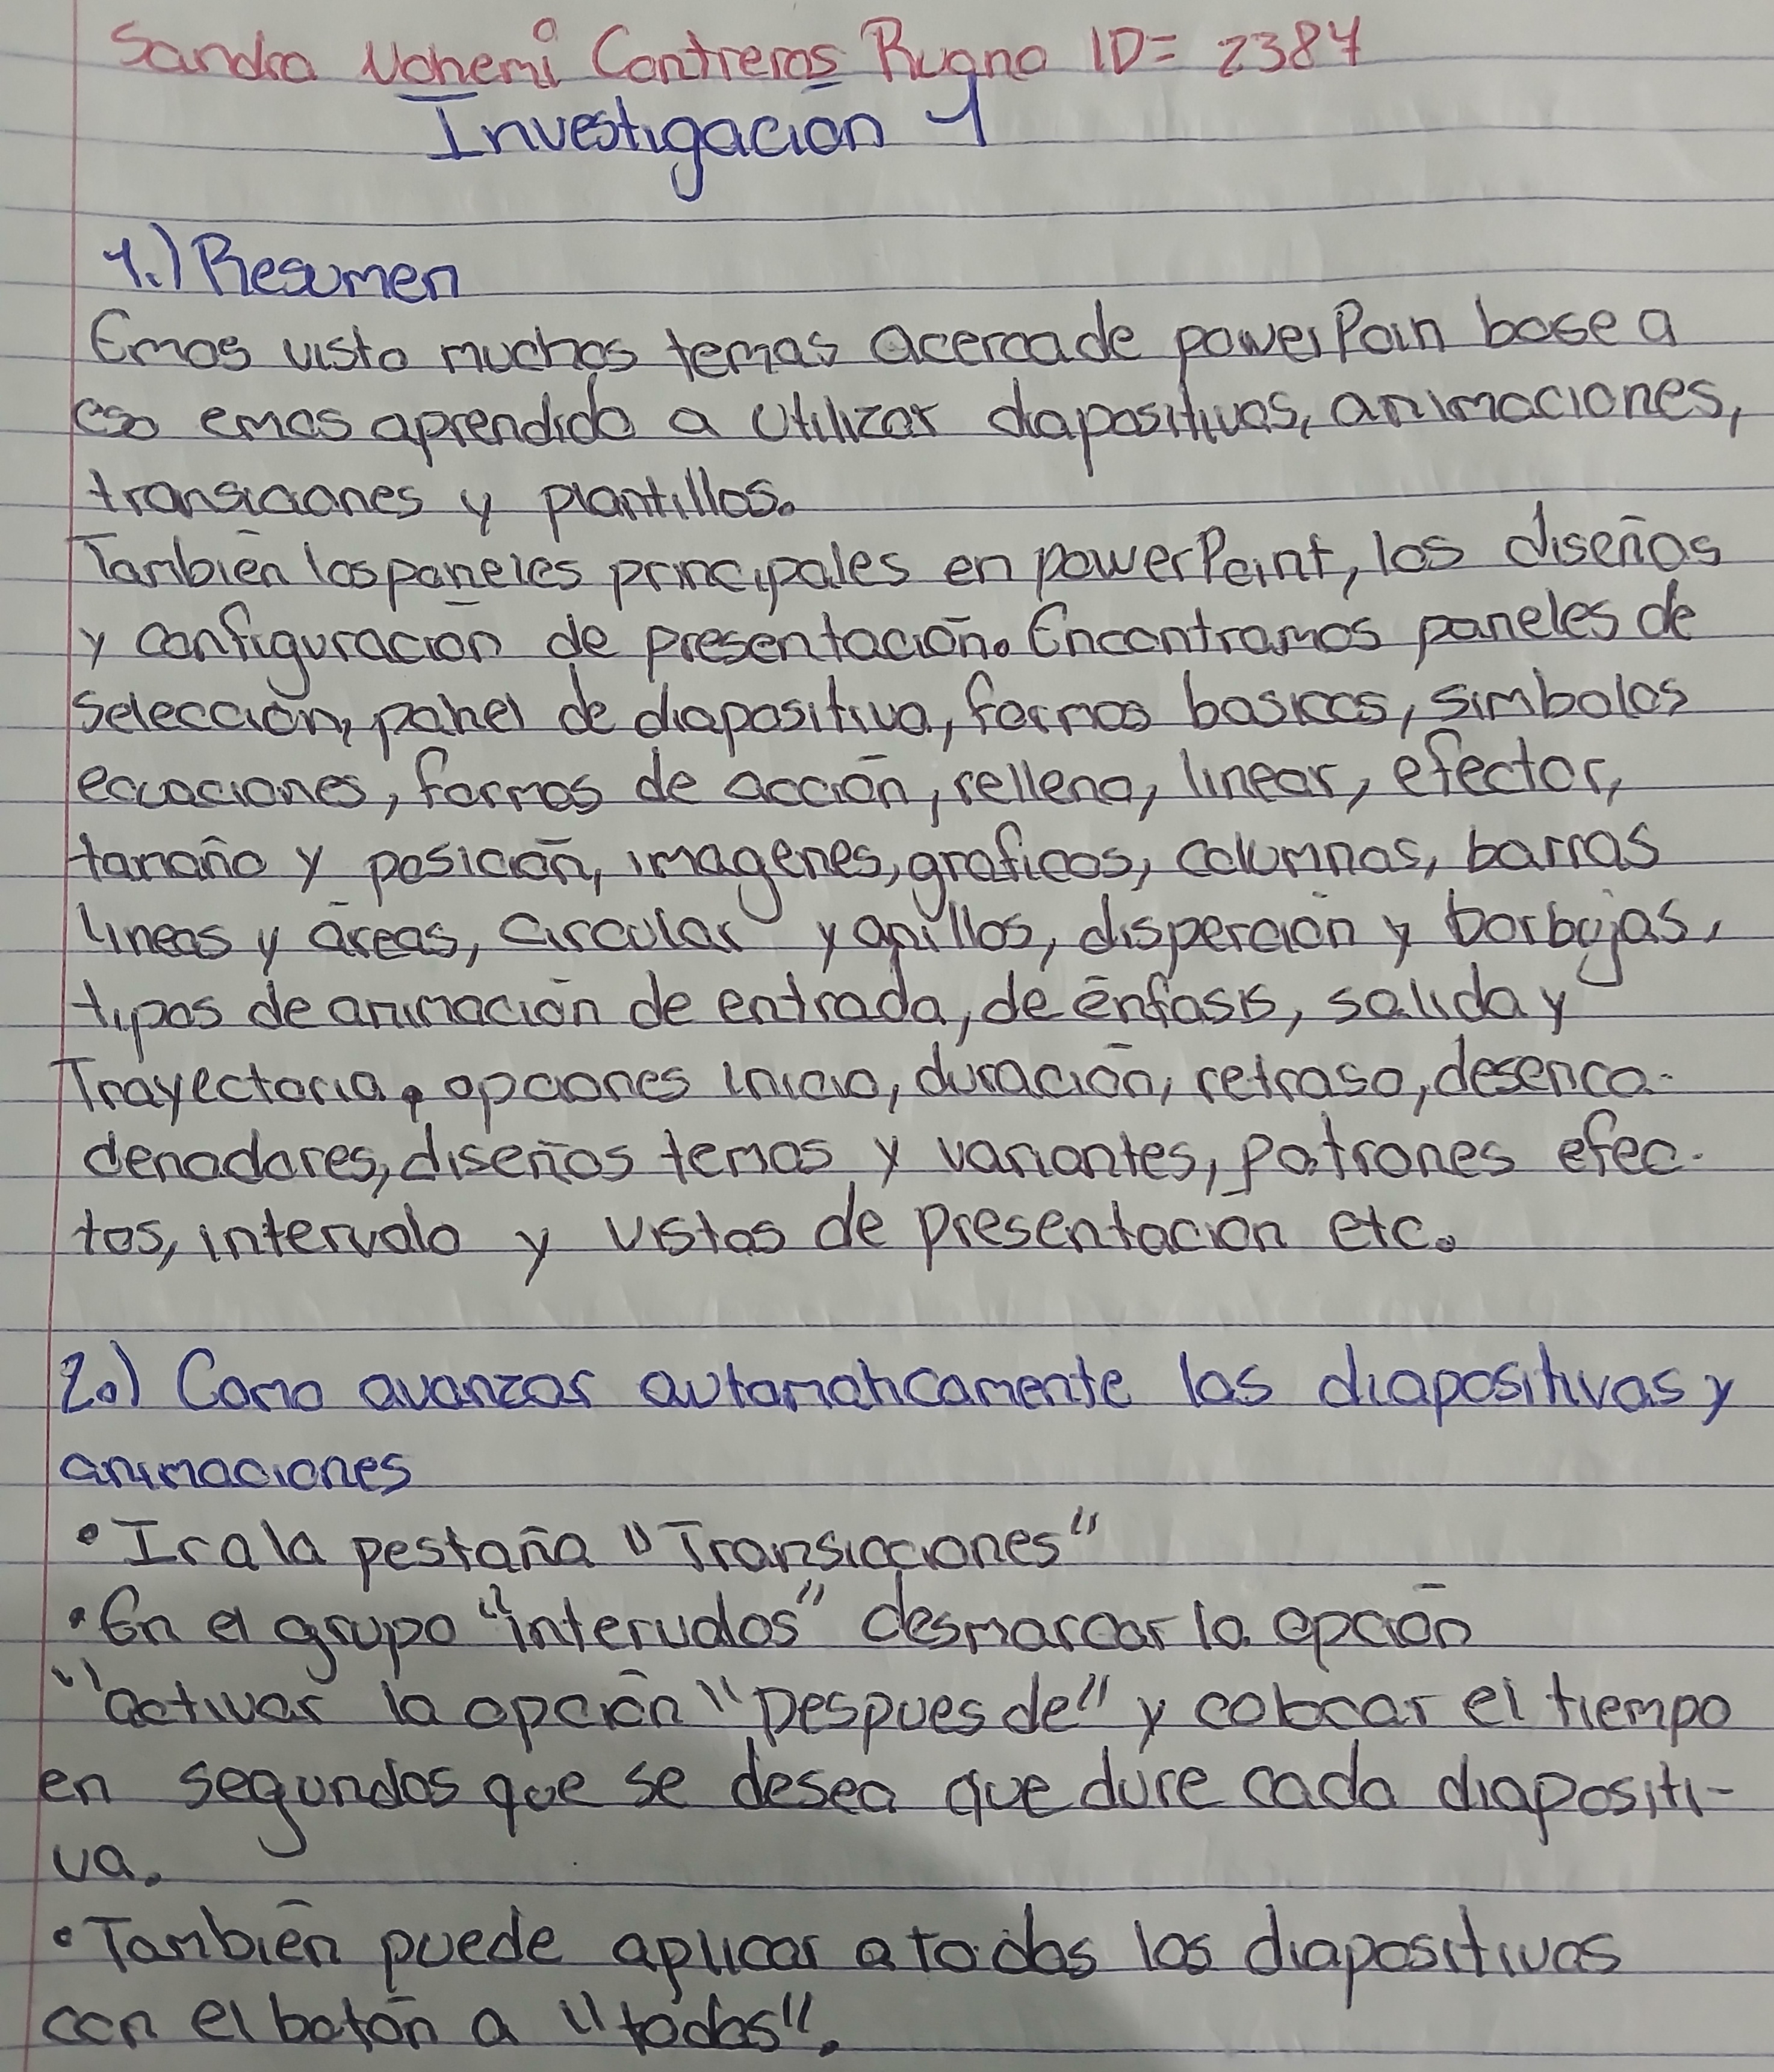 Sandra Nohemi Contreras Ruano ID= 2384
Investigación 1
1.) Resumen
Emos visto muchos temas acercade powerPoin base a
eso emos aprendido a utilizar diapositivas, animaciones,
transiciones y plantillas.
También los paneles principales en powerPoint, los diseños
y configuración de presentación. Encontramos paneles de
selección, panel de diapositiva, formas basicas, simbolos
ecuaciones, formas de acción, relleno, linear, efector,
tamaño y posición, imagenes, graficos, columnas, barras
lineas y áreas, circular y anillos, disperción y borbujas,
tipos de animación de entrada, de énfasis, salida y
Trayectoria, opciones inicio, duración, retraso, desenca-
denadores, diseños temas y variantes, patrones efec-
tos, intervalo y vistas de presentacion etc.
2.) Como avanzar automaticamente las diapositivas y
animaciones
• Ir a la pestaña "Transicciones"
• En el grupo "intervalos" desmarcar la opción
"activar la opción "Despues de" y colocar el tiempo
en segundos que se desea que dure cada diapositi-
va.
• También puede aplicar a todas las diapositivas
con el botón a "todas".